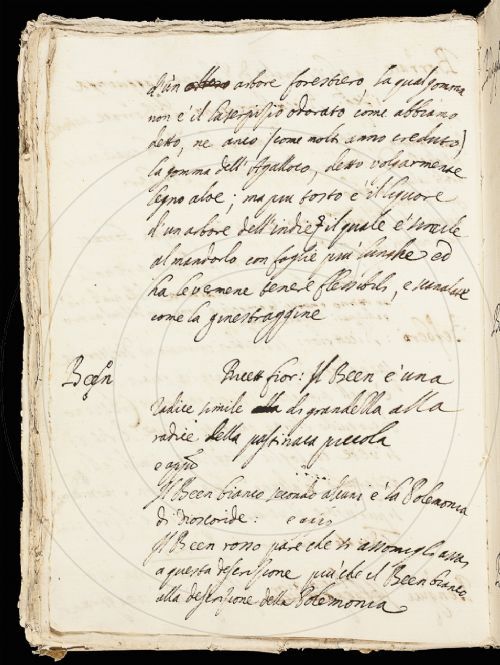 d'un arbore forestiero, la qual gomma
non e' il laserpisio odorato come abbiamo
detto, ne anco (come molti anno creduto)
la gomma dell'Agalloco, detto volgarmente
legno aloe; ma piu tosto e' il liquore
d'un arbore dell'indie, il quale e' simile
al mandorlo con foglie piu' lunghe ed
ha le vemene tenere flessibili, e
come la ginestraggine
Been
Ricett fior: Il Been e' una
radice simile di grandezza alla
radice della pastinaca piccola
e appo
Il Been bianco secondo alcuni e' la Polemonia
di Dioscoride: e
Il Been rosso pare che si assomigli assai
a questa descrizione, piu' che il Been bianco
alla descrizione della Polemonia